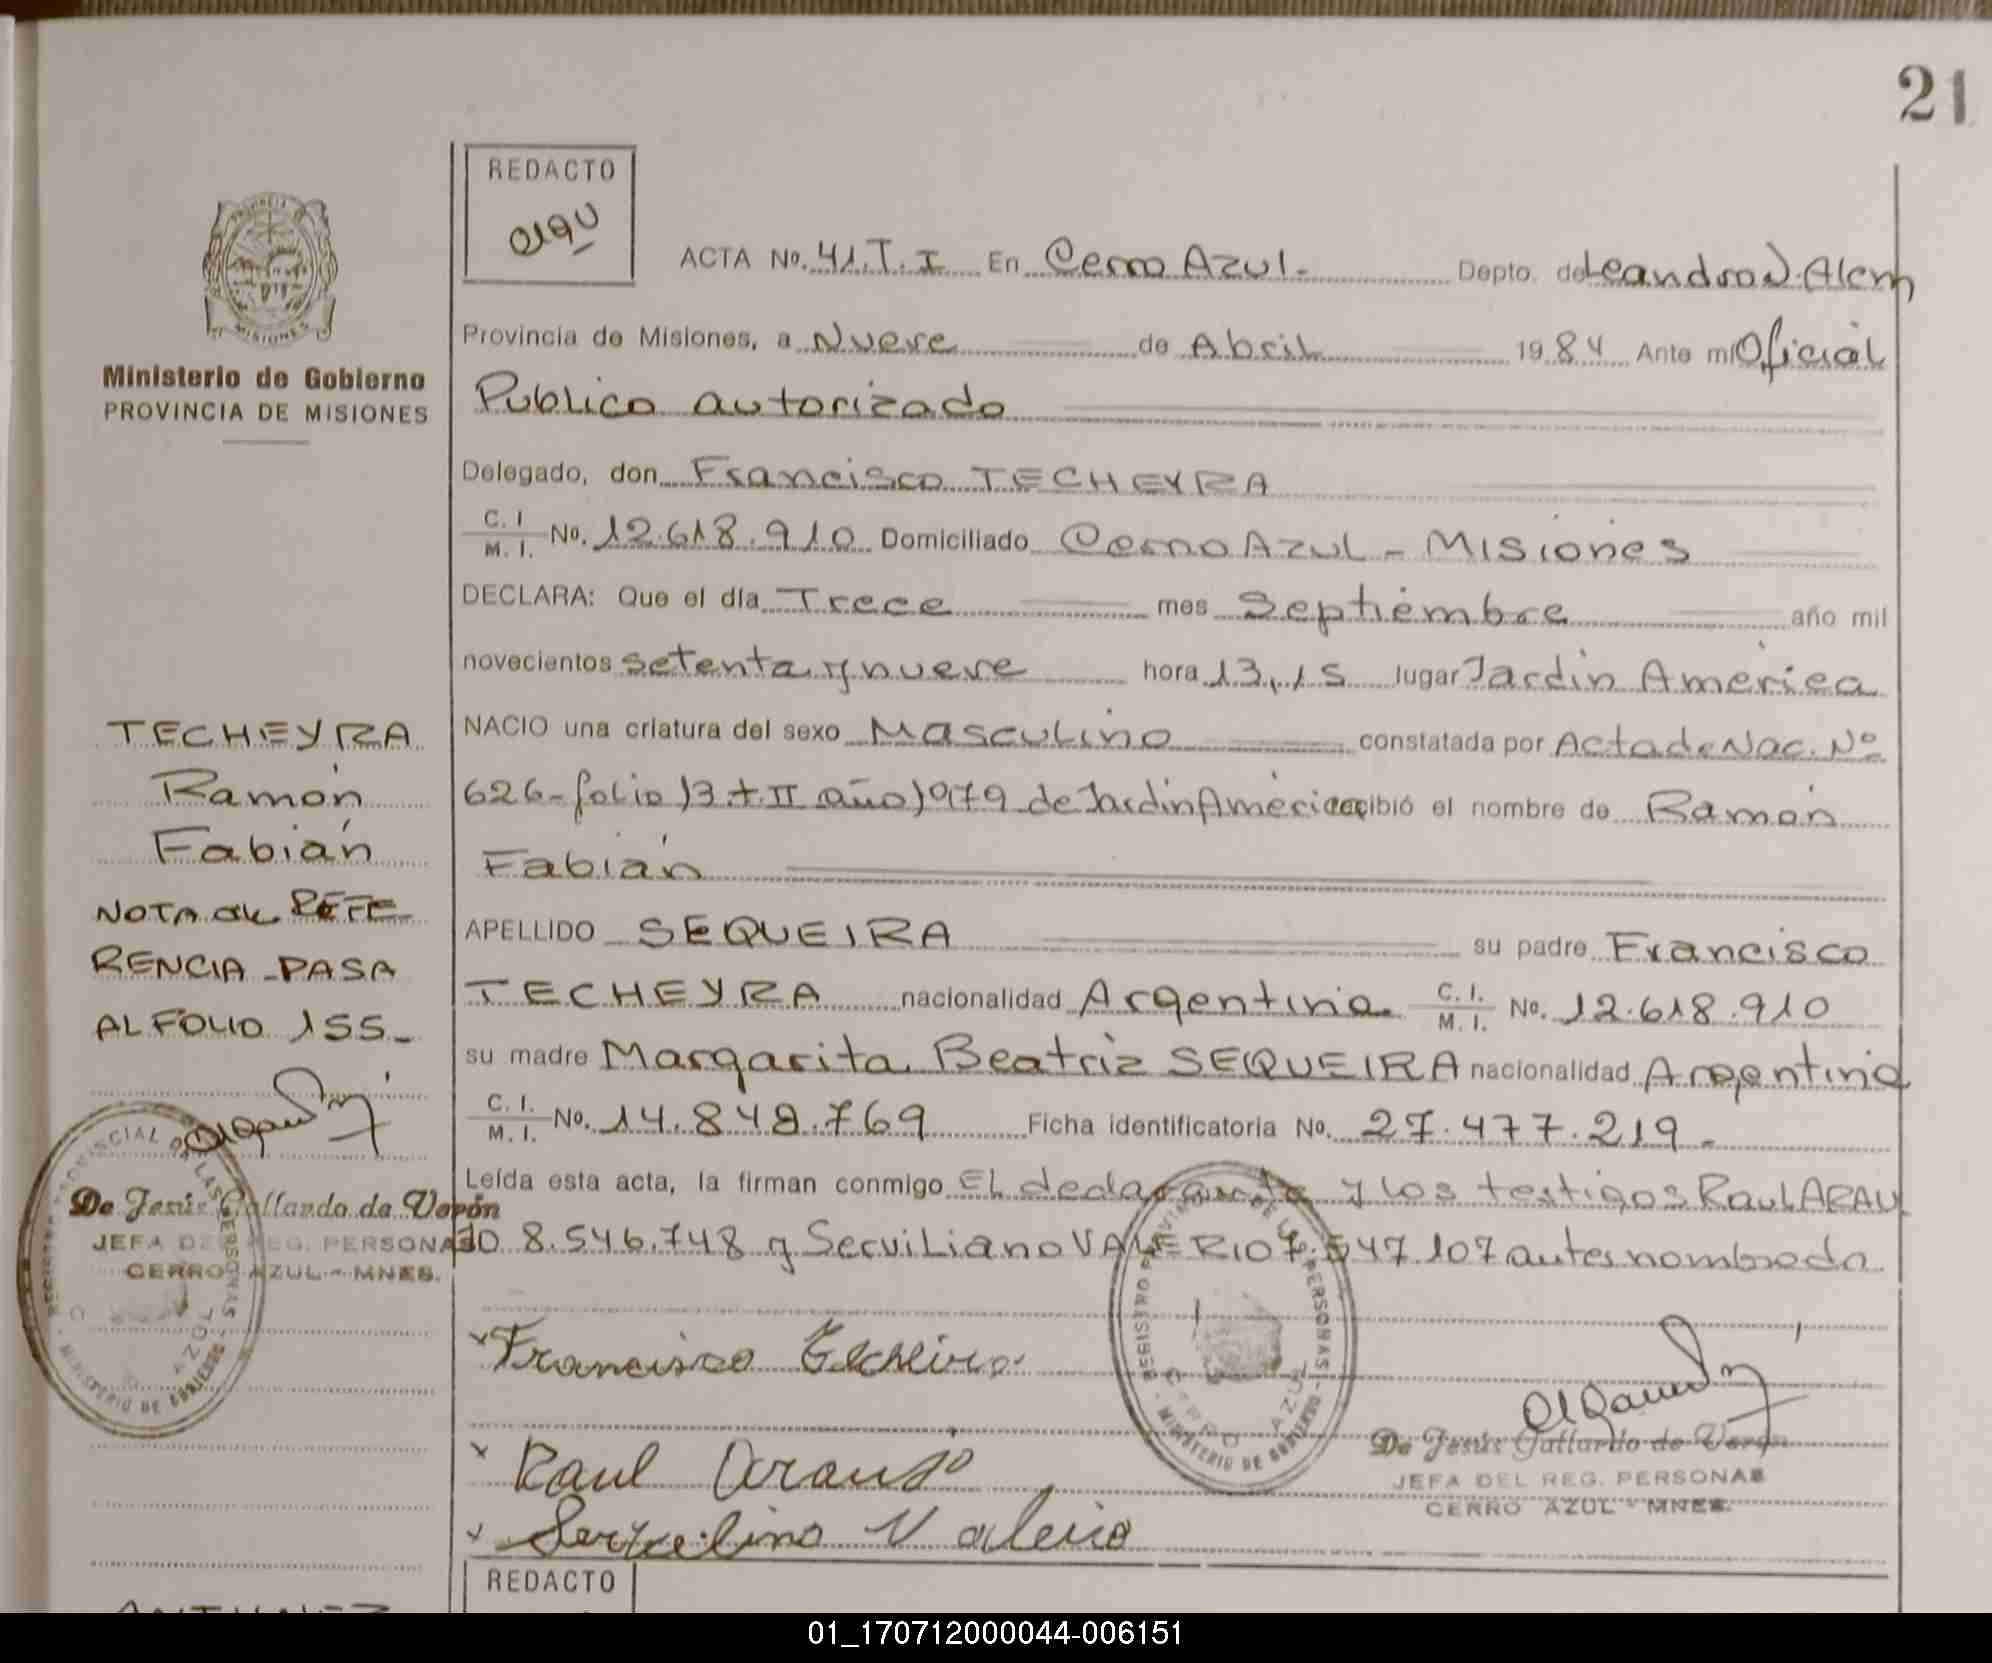 21
REDACTO
PROVINCIA DE
MISIONES
ACTA No. 41.T.I En Cerro Azul.- Depto. de Leandro N. Alem
Ministerio de Gobierno
PROVINCIA DE MISIONES
Provincia de Misiones, a Nueve de Abril 1984 Ante mi Oficial
Publico autorizado
Delegado, don Francisco TECHEYRA
C. I. M. I. No. 12.618.910 Domiciliado Cerro Azul - Misiones
DECLARA: Que el día Trece mes Septiembre año mil
novecientos setenta y nueve hora 13,15 lugar Jardin America
NACIO una criatura del sexo Masculino constatada por Acta de Nac. Nº
626- folio 13 t. II año 1979 de Jardin América recibió el nombre de Ramón
Fabián
APELLIDO SEQUEIRA su padre Francisco
TECHEYRA nacionalidad Argentina. C. I. M. I. No. 12.618.910
su madre Margarita Beatriz SEQUEIRA nacionalidad Argentina
C. I. M. I. No. 14.848.769 Ficha identificatoria No. 27.477.219.-
Leída esta acta, la firman conmigo El declarante y los testigos Raul ARAU
JO 8.546.748 y Serviliano VALERIO 7.547.107 antes nombrado.
TECHEYRA
Ramón
Fabián
NOTA DE REFE
RENCIA - PASA
AL FOLIO 155.-
De Jesús Gallardo de Verón
JEFA DEL REG. PERSONAS
CERRO AZUL - MNES.
REGISTRO PROVINCIAL DE LAS PERSONAS
CERRO AZUL
MINISTERIO DE GOBIERNO
x Francisco Techeira
x Raul Araujo
x Servelino Valerio
REGISTRO PROVINCIAL DE LAS PERSONAS
CERRO AZUL
MINISTERIO DE GOBIERNO
De Jesús Gallardo de Verón
JEFA DEL REG. PERSONAS
CERRO AZUL - MNES.
REDACTO
01_170712000044-006151